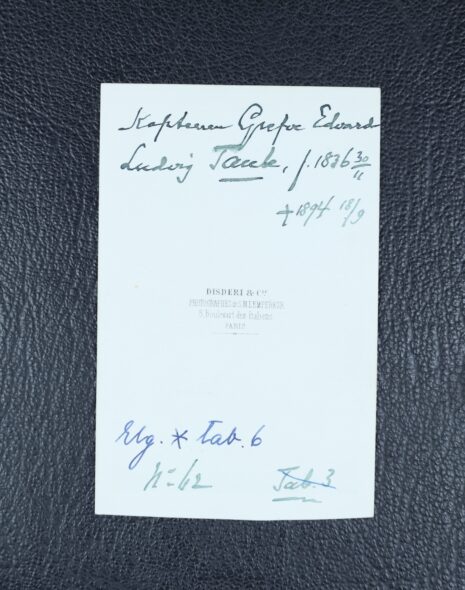 Kaptenen Grefve Edvard
Ludvig Taube, f. 1836 30/11
† 1894 18/9
DISDERI & Cie
PHOTOGRAPHES de S.M. L'EMPEREUR
8, Boulevart des Italiens
PARIS
Elg. * Tab. 6
No 42
Tab. 3